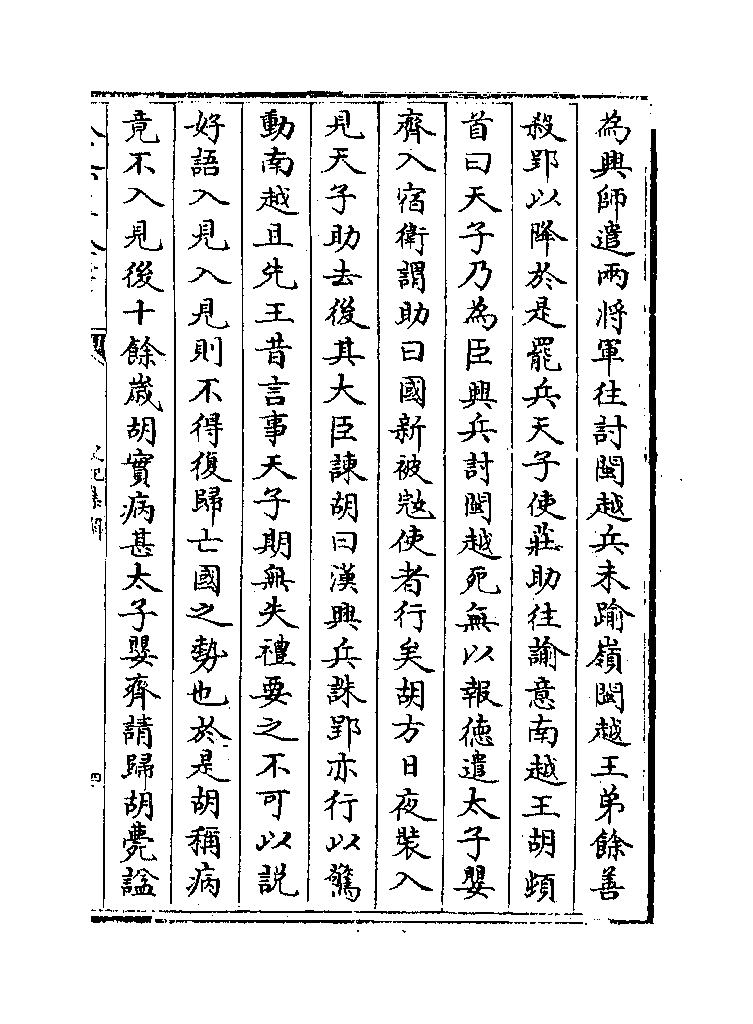 為興師遣兩將軍往討閩越兵未踰嶺閩越王弟餘善
殺郢以降於是罷兵天子使莊助往諭意南越王胡頓
首曰天子乃為臣興兵討閩越死無以報德遣太子嬰
齊入宿衛謂助曰國新被㓂使者行矣胡方日夜裝入
見天子助去後其大臣諫胡曰漢興兵誅郢亦行以驚
動南越且先王昔言事天子期無失禮要之不可以説
好語入見入見則不得復歸亡國之勢也於是胡稱病
竟不入見後十餘歲胡實病甚太子嬰齊請歸胡薨諡
史記集解
四